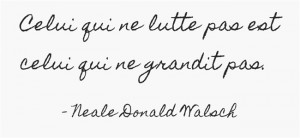 Celui qui ne lutte pas est
celui qui ne grandit pas.
- Neale Donald Walsch